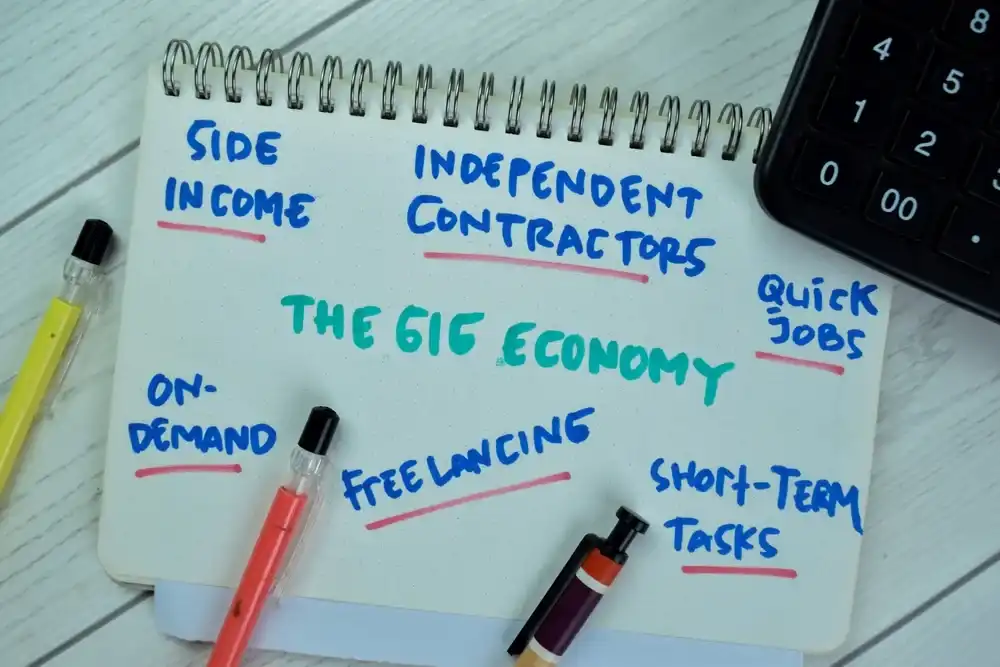 SIDE
INCOME
INDEPENDENT
CONTRACTORS
QUiCK
JOBS
THE GIG ECONOMY
ON-
DEMAND
FREELANCING
SHORt-TERM
TASKS
8
4
5
1
2
0
00
.